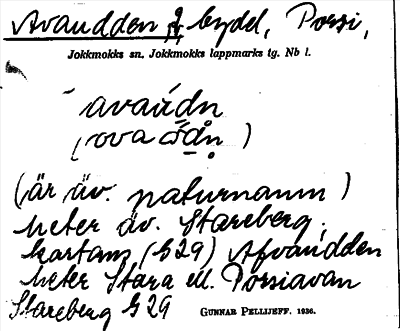 Avaudden, bydel, Porsi,
Jokkmokks sn. Jokkmokks lappmarks tg. Nb l.
avaúdn
(är äv. naturnamn)
heter äv. Stareberg.
kartans (G 29) Afvaudden
heter Stara el. Porsiavan
Stareberg G 29
GUNNAR PELLIJEFF. 1936.